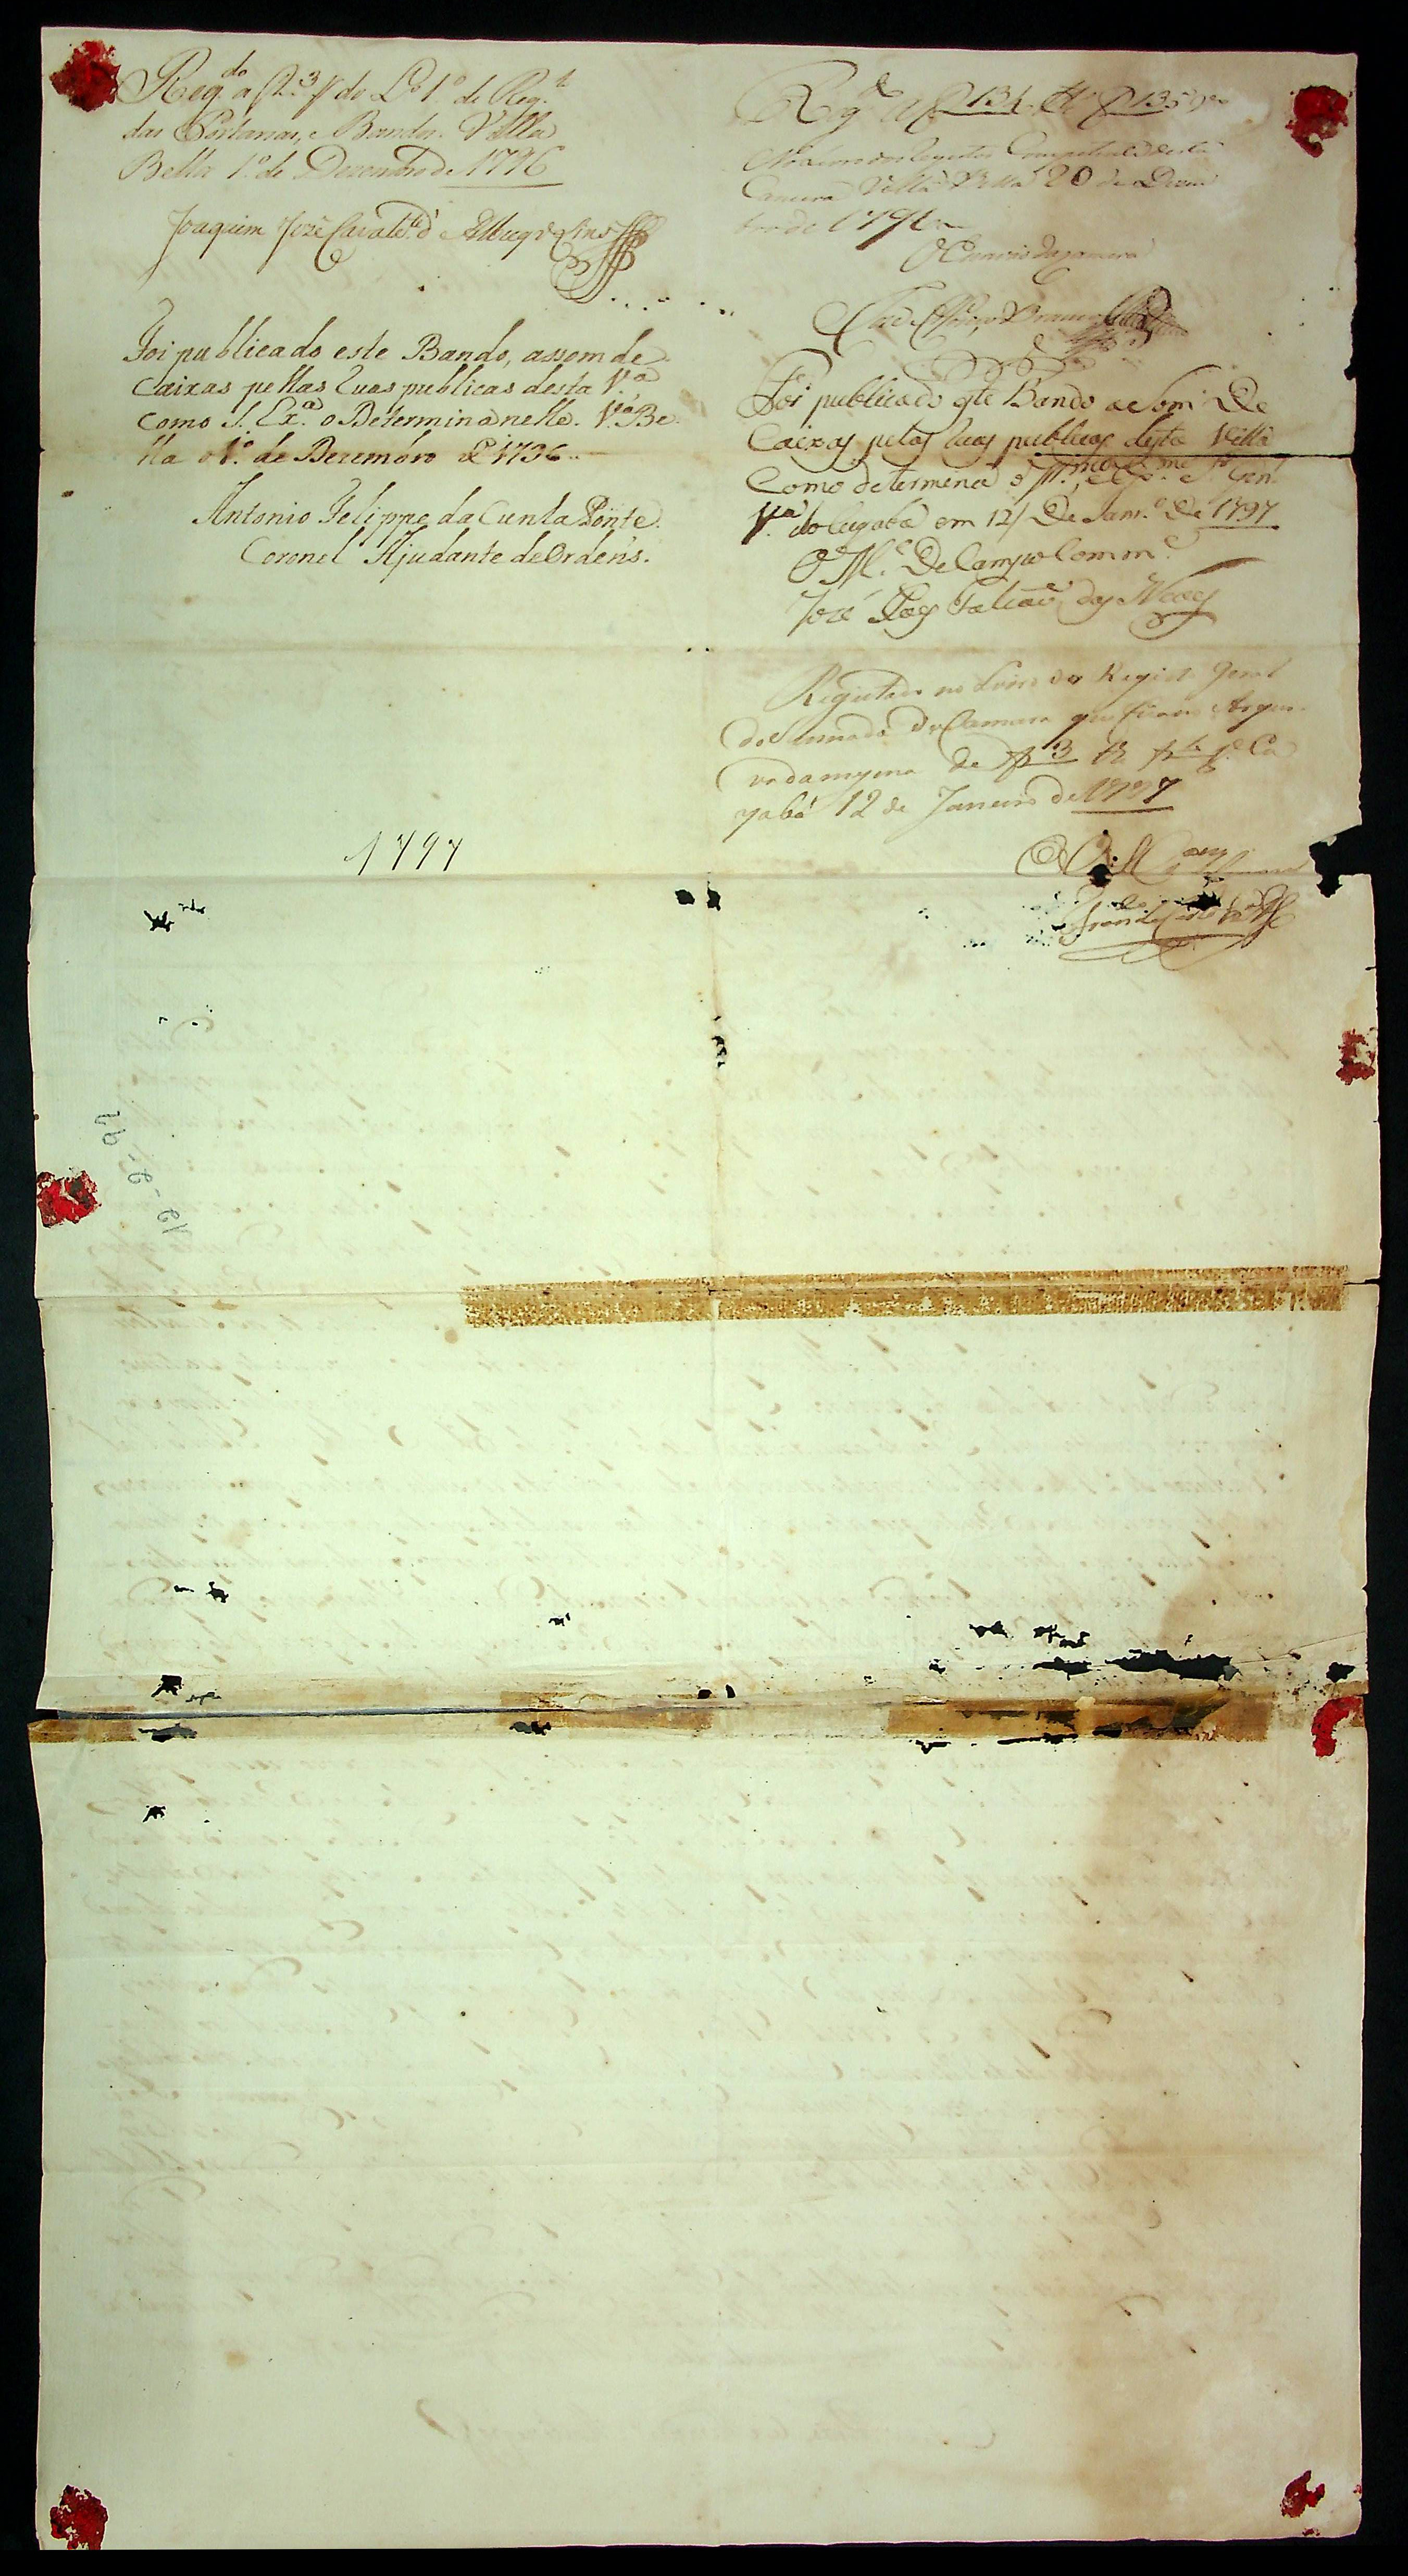 Reg.do a f 2.3 V do L.o 1.o de Reg.to
das Portarias, e Bandos. Villa
Bella 1.o de Dezembro de 1796
Joaquim José Cavalc.te d' Albuqr.e Lins
Foi publicado este Bando, assom de
Caixas pellas Ruas publicas desta V.a
como S. Ex.a o Determina nelle. V.a Be
lla o 1.o de Dezembro de 1796
Antonio Felippe da Cunha Ponte.
Coronel Ajudante de Ordens.
1797
Reg.do a f 134 f 135
Camera Villa Bella 20 de Dezem
bro de 1796
O Escrivão da Camera
Foi publicado este Bando a Som De
Caixas pelas Ruas publicas desta Villa
Como determina o Ill.mo e Ex.mo S.r Gen.
V.a do Cuyabá em 12 De Jan.o De 1797
O M.e De Campo Comm.e
José Paes Falcão das Neves
Registado no Livro do Registo Geral
do Sennado da Camara que
de f 3 f Cu
yabá 12 de Janeiro de 1797
19-9-97